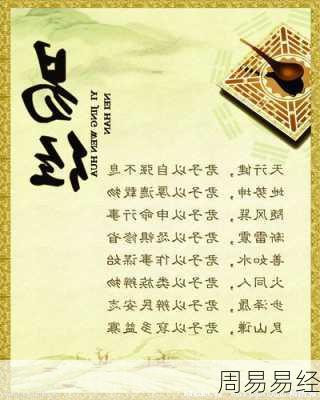 YI JING WEN HUA
NEI HAN
天行健，君子以自强不息
地势坤，君子以厚德载物
随风巽，君子以申命行事
渐雷震，君子以恐惧修省
善如水，君子以作事谋始
火同人，君子以类族辨物
步泽履，君子以辨民安志
艮山谦，君子以裒多益寡
周易易经